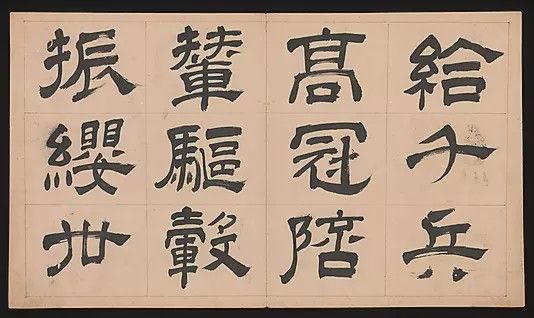 給千兵
髙冠陪
輦驅轂
振纓世